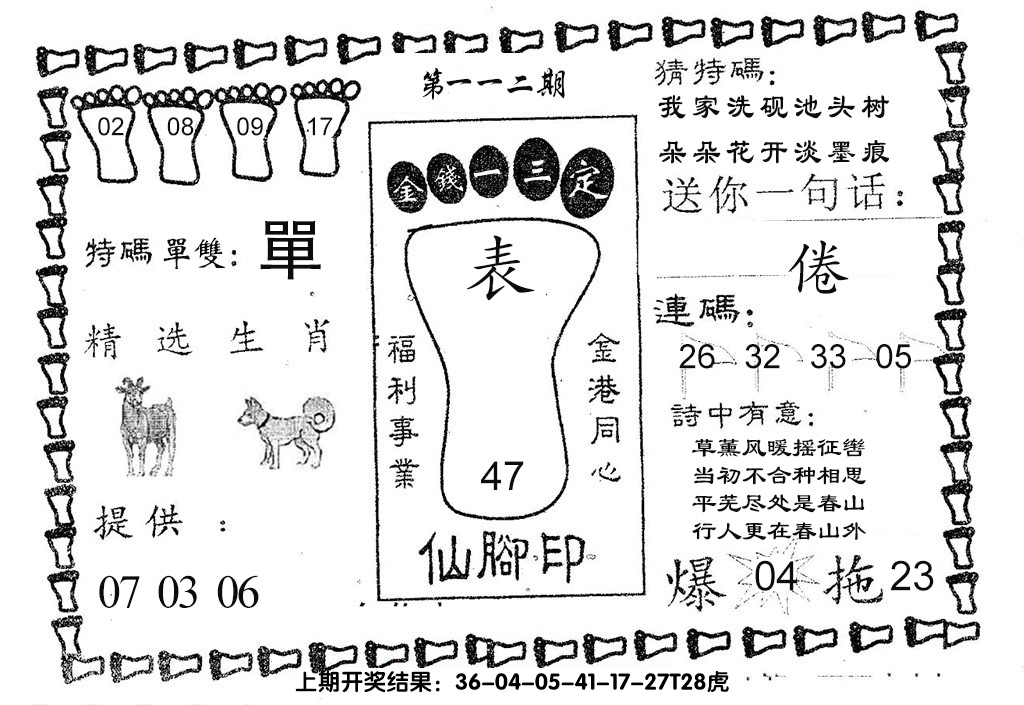 第一一二期
02 08 09 17
特碼單雙：單
精选生肖
提供：
07 03 06
金錢一三定
表
福利事業
金港同心
47
仙腳印
猜特碼：
我家洗砚池头树
朵朵花开淡墨痕
送你一句话：
倦
連碼：
26 32 33 05
詩中有意：
草薰风暖摇征辔
当初不合种相思
平芜尽处是春山
行人更在春山外
爆 04 拖 23
上期开奖结果：36-04-05-41-17-27T28虎